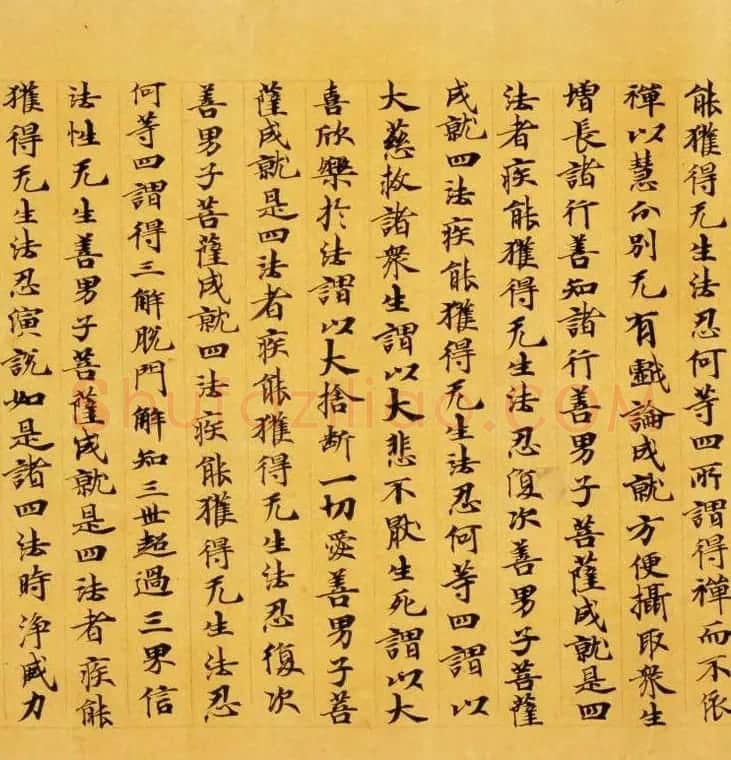 能獲得无生法忍何等四所謂得禪而不依
禪以慧分別无有戲論成就方便攝取衆生
增長諸行善知諸行善男子菩薩成就是四
法者疾能獲得无生法忍復次善男子菩薩
成就四法疾能獲得无生法忍何等四謂以
大慈救諸衆生謂以大悲不厭生死謂以大
喜欣樂於法謂以大捨斷一切愛善男子菩
薩成就是四法者疾能獲得无生法忍復次
善男子菩薩成就四法疾能獲得无生法忍
何等四謂得三解脫門解知三世超過三界信
法性无生善男子菩薩成就是四法者疾能
獲得无生法忍演說如是諸四法時淨威力
shufaziliao.COM